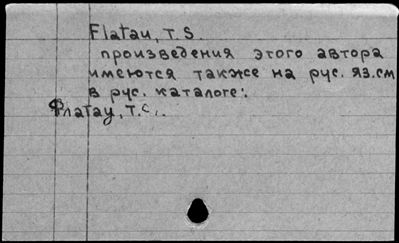 Flatau, T.S.
произведения этого автора
имеются также на рус. яз. см
в рус. каталоге:
Флатау, Т.С..